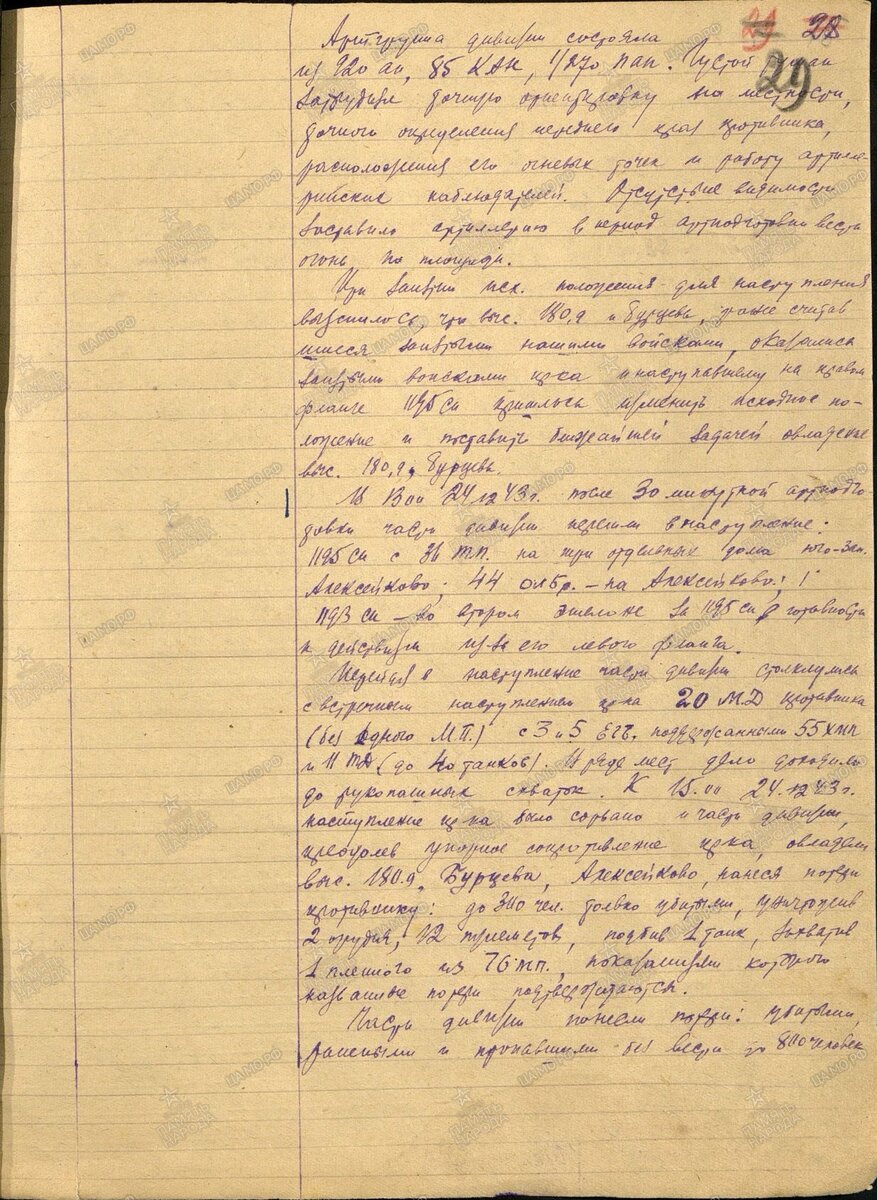 28
29
Артгруппа дивизии состояла
из 920 ап, 85 КАП, 1/270 пап. Густой туман
затруднял точную ориентировку на местности,
точного определения переднего края противника,
расположения его огневых точек и работу артилле-
рийских наблюдателей. Отсутствие видимости
заставило артиллерию в период артподготовки вести
огонь по площади.
При занятии исх. положения для наступления
выяснилось, что выс. 180,9 и Бурцева, ранее считав
шиеся занятыми нашими войсками, оказались
занятыми войсками пр-ка и наступавшему на правом
фланге 1195 сп пришлось изменить исходное по-
ложение и поставить ближайшей задачей овладение
выс. 180,9, Бурцева.
В 13.00 24.12.43 г. после 30 минутной артподго-
товки части дивизии перешли в наступление:
1195 сп с тп. на три отдельных дома юго-зап.
Алексейково; 44 олбр. – на Алексейково;
1193 сп – во втором эшелоне за 1195 сп в готовности
к действиям из-за его левого фланга.
Перейдя в наступление части дивизии столкнулись
с встречным наступлением пр-ка 20 МД противника
(без одного МП.) с 3 и 5 ЕГЪ, поддержанными 55 хмп
и 11 ТД (до 40 танков). В ряде мест дело доходило
до рукопашных схваток. К 15.00 24.12.43 г.
наступление пр-ка было сорвано и части дивизии,
преодолев упорное сопротивление пр-ка, овладели
выс. 180.9, Бурцева, Алексейково, нанеся потери
противнику: до 300 чел. только убитыми, уничтожив
2 орудия, 12 пулеметов, подбив 1 танк, захватив
1 пленного из 76 мп., показаниями которого
названные потери подтверждаются.
Части дивизии понесли потери: убитыми,
ранеными и пропавшими без вести до 800 человек
ЦАМО.РФ
ПАМЯТЬ НАРОДА